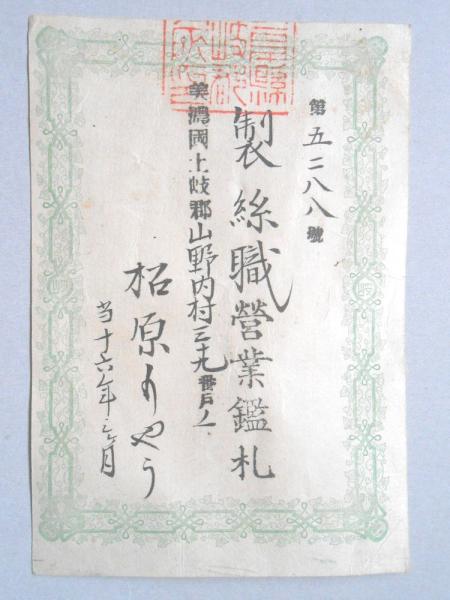 第五二八八號
製絲職營業鑑札
美濃國土岐郡山野内村三十九番戸
柘原りやう
当十六年三ヶ月